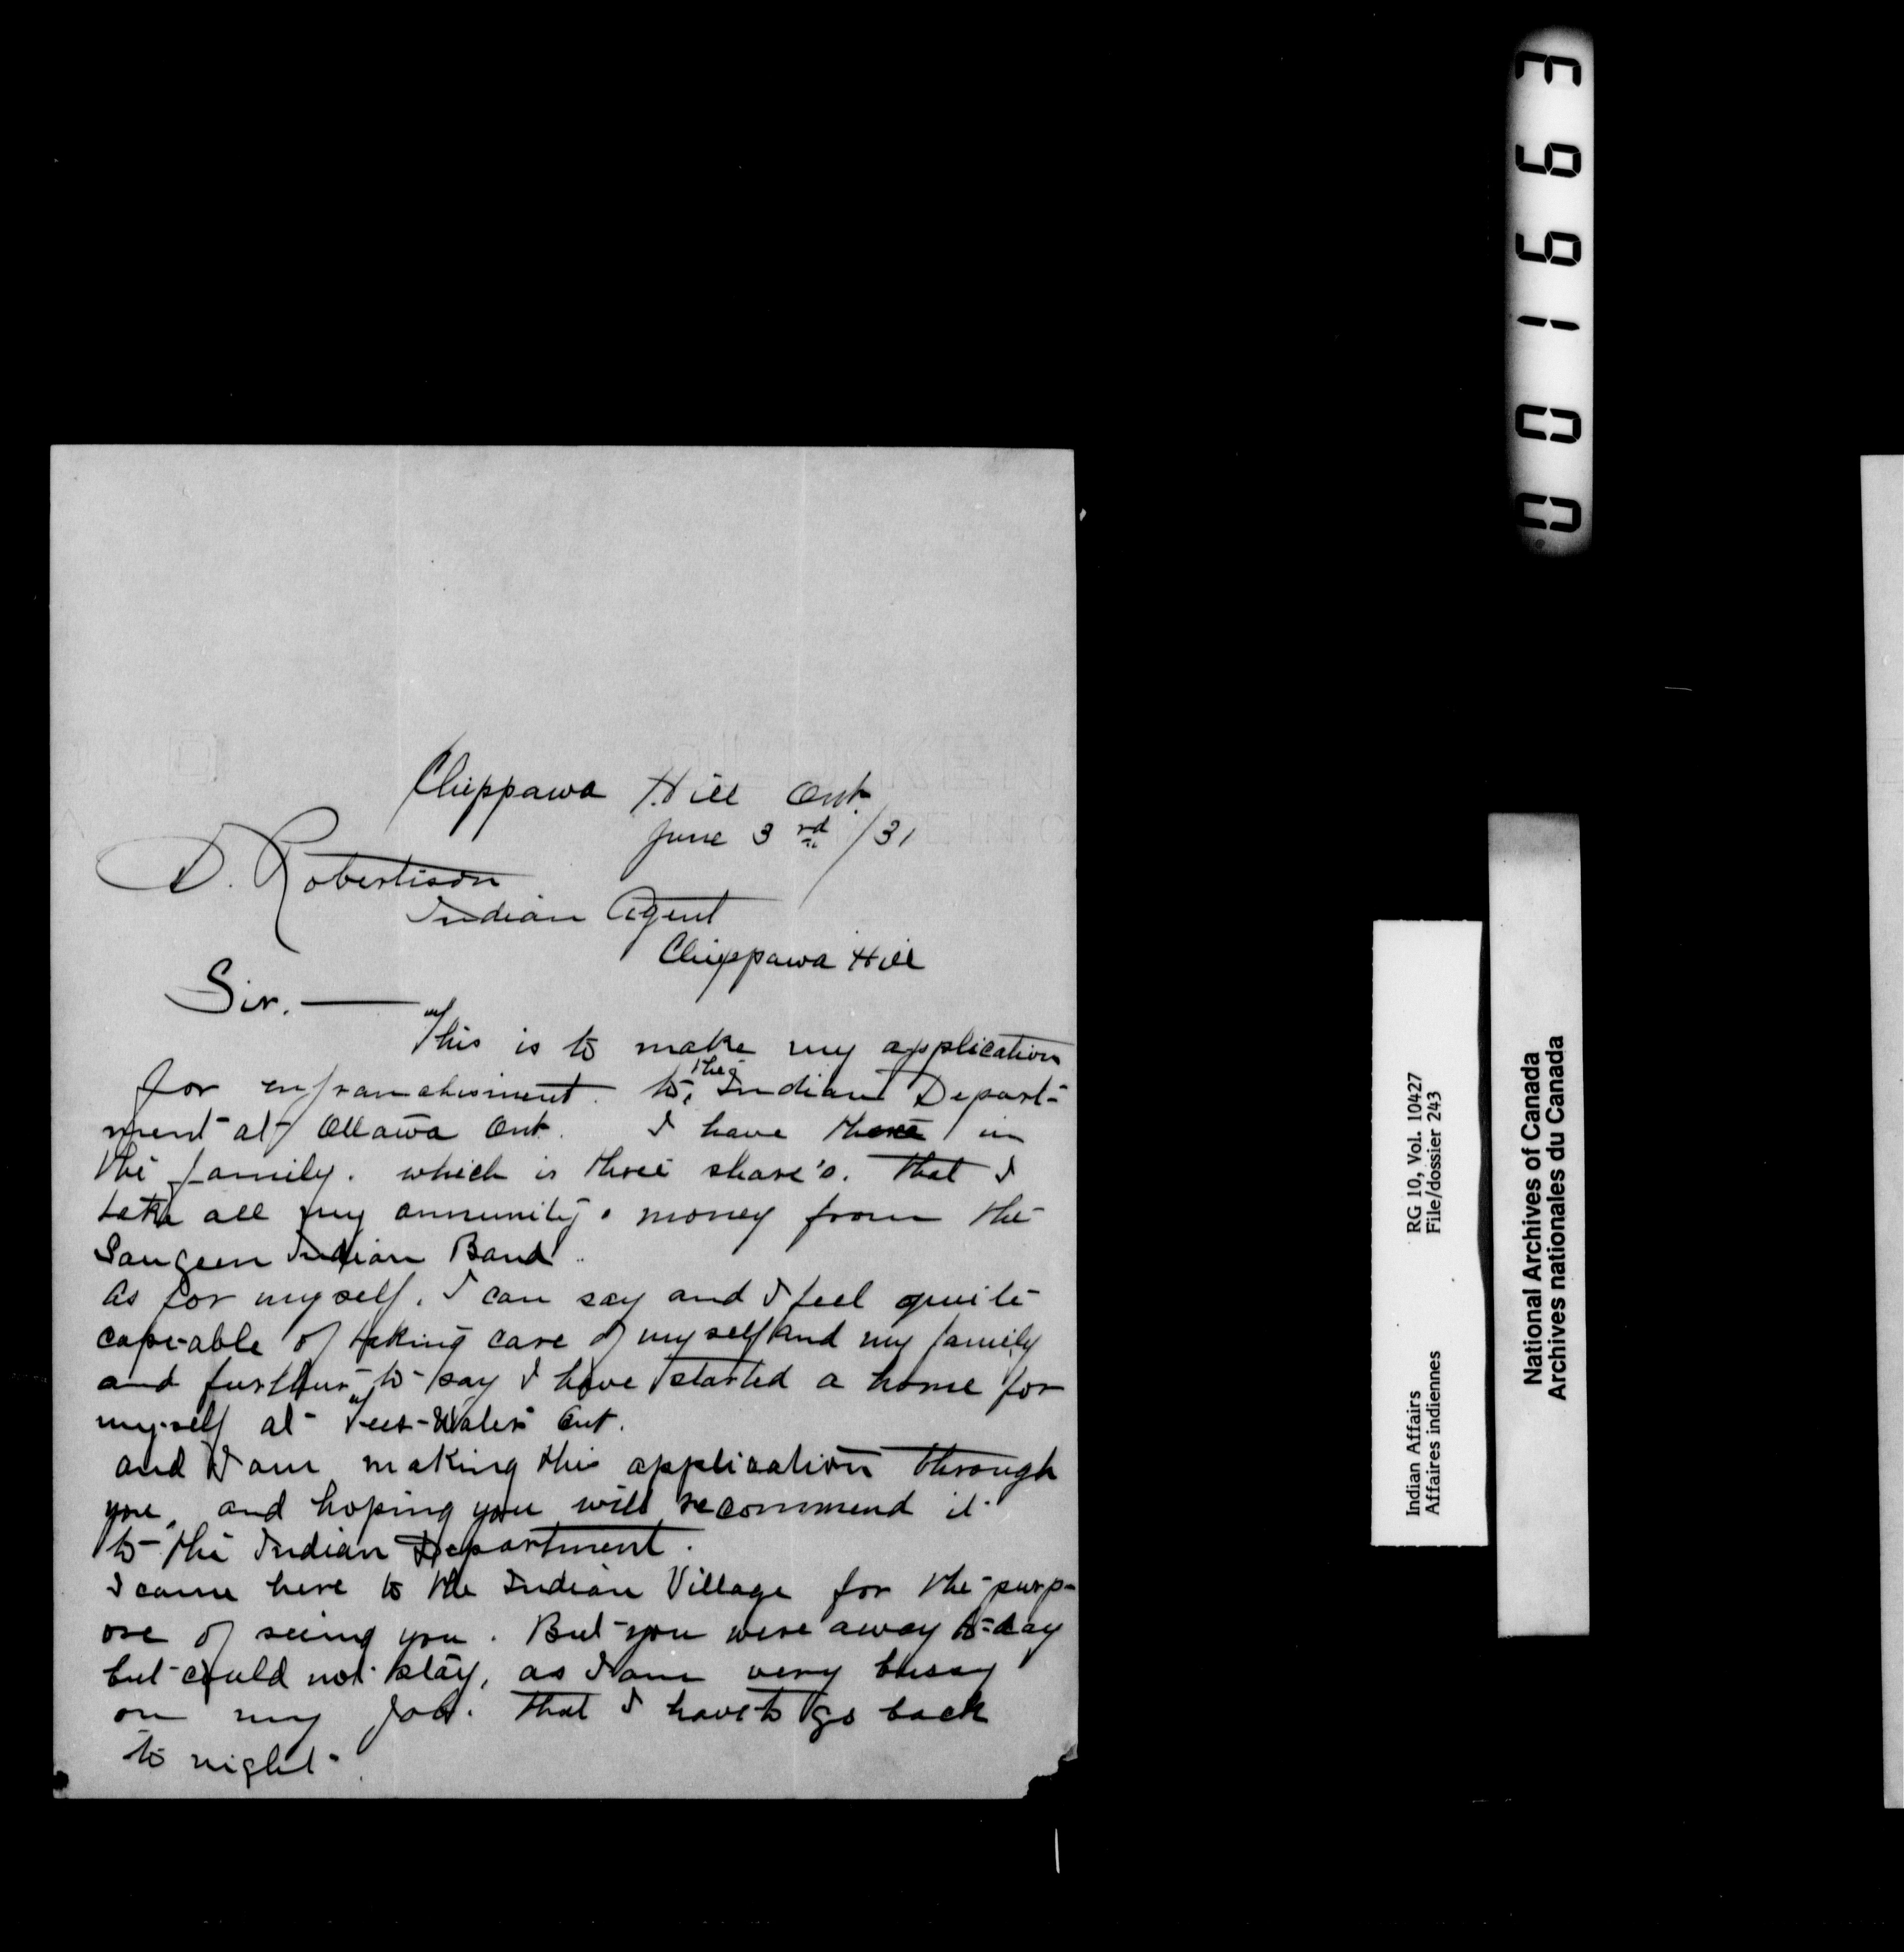 Chippawa Hill Ont.
June 3rd /31
D. Robertison
Indian Agent
Chippawa Hill
Sir. —
This is to make my application
for enfranchisment. to, the Indian Depart-
ment at Ottawa Ont. I have three in
the family. which is three share's. that I
take all my annunity. money from the
Saugeen Indian Band.
As for myself. I can say and I feel quite
cape-able of taking care of myself and my family
and further to say I have started a home for
my-self at Tees-Water Ont.
and I am making this application through
you, and hoping you will recommend it
to the Indian Department.
I came here to the Indian Village for the purp-
ose of seeing you. But you were away to-day
but could not stay, as I am very bussy
on my job. that I have to go back
to night.
001663
Indian Affairs RG 10, Vol. 10427
Affaires indiennes File/dossier 243
National Archives of Canada
Archives nationales du Canada